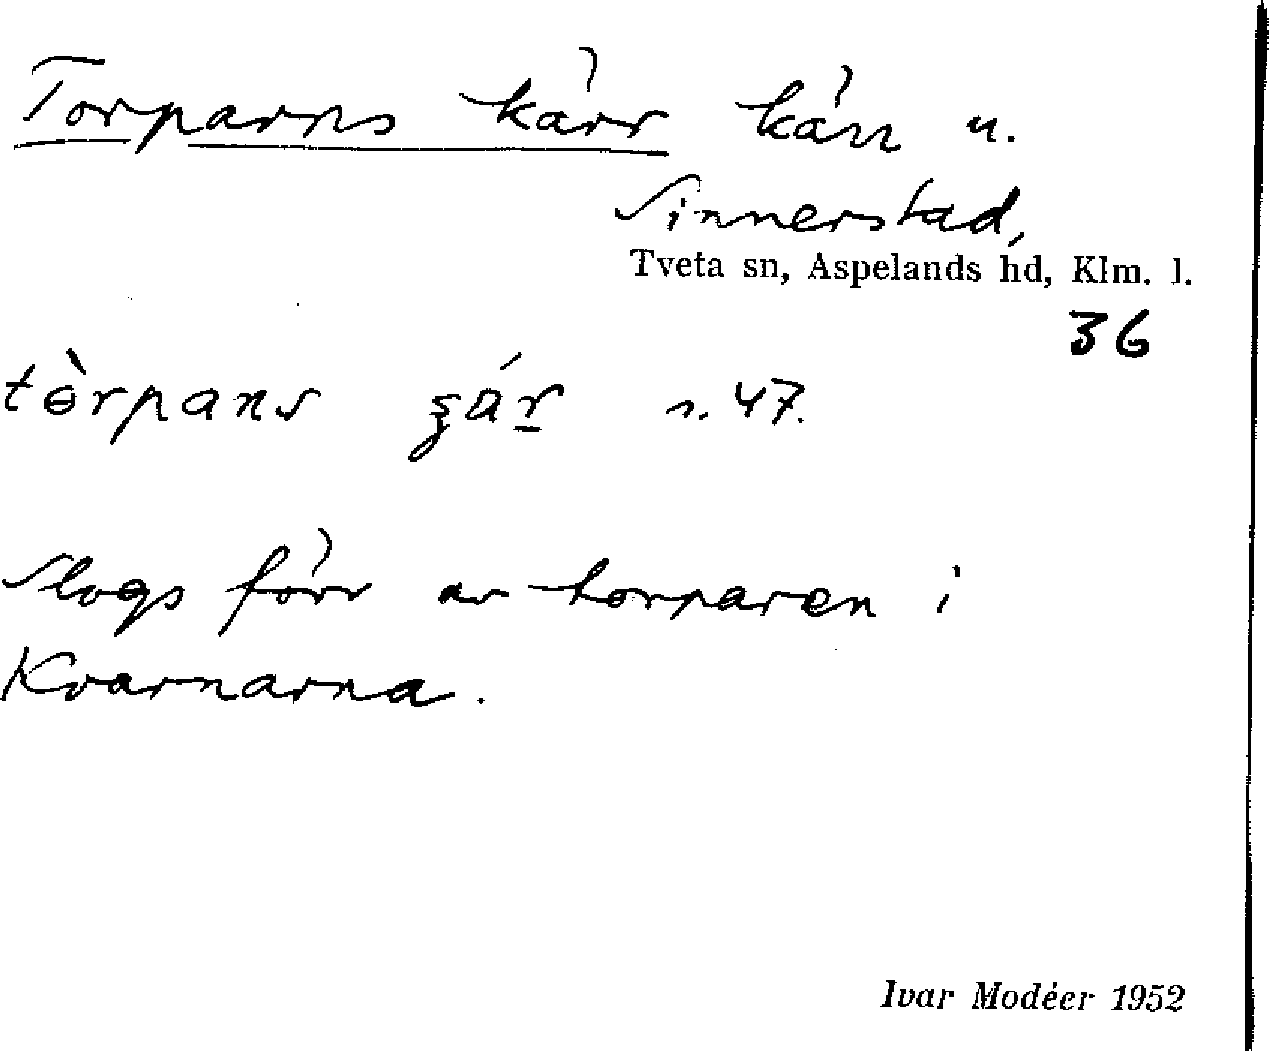 Torparns kärr kärr u.
Sinnerstad,
Tveta sn, Aspelands hd, Klm. l.
36
s. 47.
Slogs förr av torparen i
Kvarnarna.
Ivar Modéer 1952